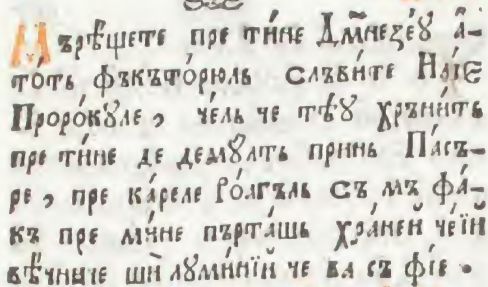 Мърѣщете пре ти́не Дⷨнезе́ꙋ а́-
то́ть фъкъто́рюль слъви́те Нліе
Проро́кꙋле, че́ль че те́ꙋ хръни́ть
пре ти́не де демꙋлть принь Па́съ-
ре, пре ка́реле Ро́агъль съ мъ фа́-
къ пре ми́не пърта́шь хра́ней че́їй
вѣчниче шѝ лꙋми́нїй че ва съ фі́е.